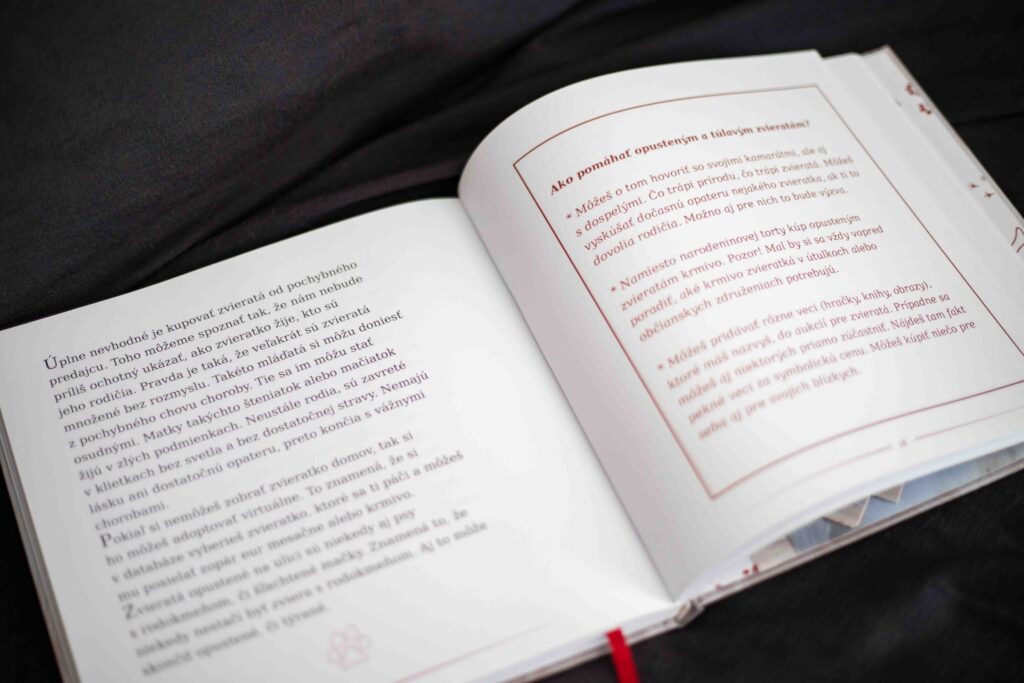 Úplne nevhodné je kupovať zvieratá od pochybného
predajcu. Toho môžeme spoznať tak, že nám nebude
príliš ochotný ukázať, ako zvieratko žije, kto sú
jeho rodičia. Pravda je taká, že veľakrát sú zvieratá
množené bez rozmyslu. Takéto mláďatá si môžu doniesť
z pochybného chovu choroby. Tie sa im môžu stať
osudnými. Matky takýchto šteniatok alebo mačiatok
žijú v zlých podmienkach. Neustále rodia, sú zavreté
v klietkach bez svetla a bez dostatočnej stravy. Nemajú
lásku ani dostatočnú opateru, preto končia s vážnymi
chorobami.
Pokiaľ si nemôžeš zobrať zvieratko domov, tak si
ho môžeš adoptovať virtuálne. To znamená, že si
v databáze vyberieš zvieratko, ktoré sa ti páči a môžeš
mu posielať zopár eur mesačne alebo krmivo.
Zvieratá opustené na ulici sú niekedy aj psy
s rodokmeňom, či šľachtené mačky. Znamená to, že
niekedy nestačí byť zviera s rodokmeňom. Aj to môže
skončiť opustené, či týrané.
Ako pomáhať opusteným a túlavým zvieratám?
* Môžeš o tom hovoriť so svojimi kamarátmi, ale aj
s dospelými. Čo trápi prírodu, čo trápi zvieratá. Môžeš
vyskúšať dočasnú opateru nejakého zvieratka, ak ti to
dovolia rodičia. Možno aj pre nich to bude výzva.
* Namiesto narodeninovej torty kúp opusteným
zvieratám krmivo. Pozor! Mal by si sa vždy vopred
poradiť, aké krmivo zvieratká v útulkoch alebo
občianskych združeniach potrebujú.
* Môžeš pridávať rôzne veci (hračky, knihy, obrazy),
ktoré máš nazvyš, do aukcií pre zvieratá. Prípadne sa
môžeš aj niektorých priamo zúčastniť. Nájdeš tam fakt
pekné veci za symbolickú cenu. Môžeš kúpiť niečo pre
seba aj pre svojich blízkych.